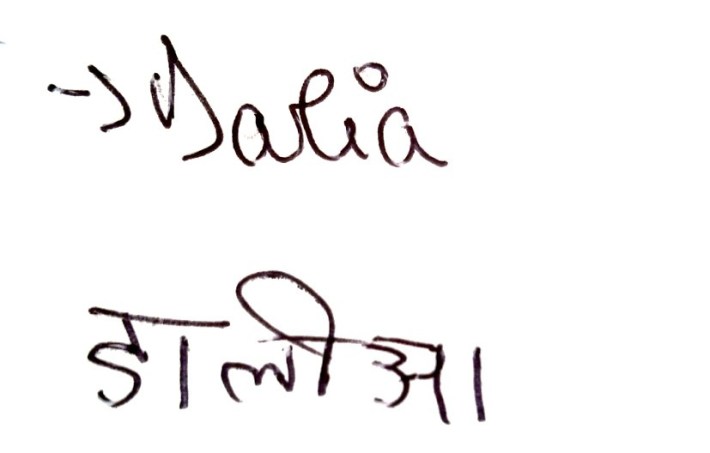 → Dalia
डालीआ